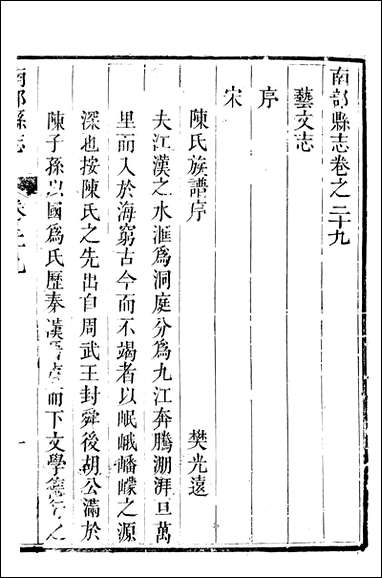 南部縣志卷之二十九
藝文志
序
宋
陳氏族譜序 樊光遠
夫江漢之水滙爲洞庭分爲九江奔騰湖湃旦萬
里而入於海窮古今而不竭者以岷峨嶓蠓之源
深也按陳氏之先出自周武王封舜後胡公滿於
陳子孫以國爲氏歷秦漢而下文學之
南部縣志